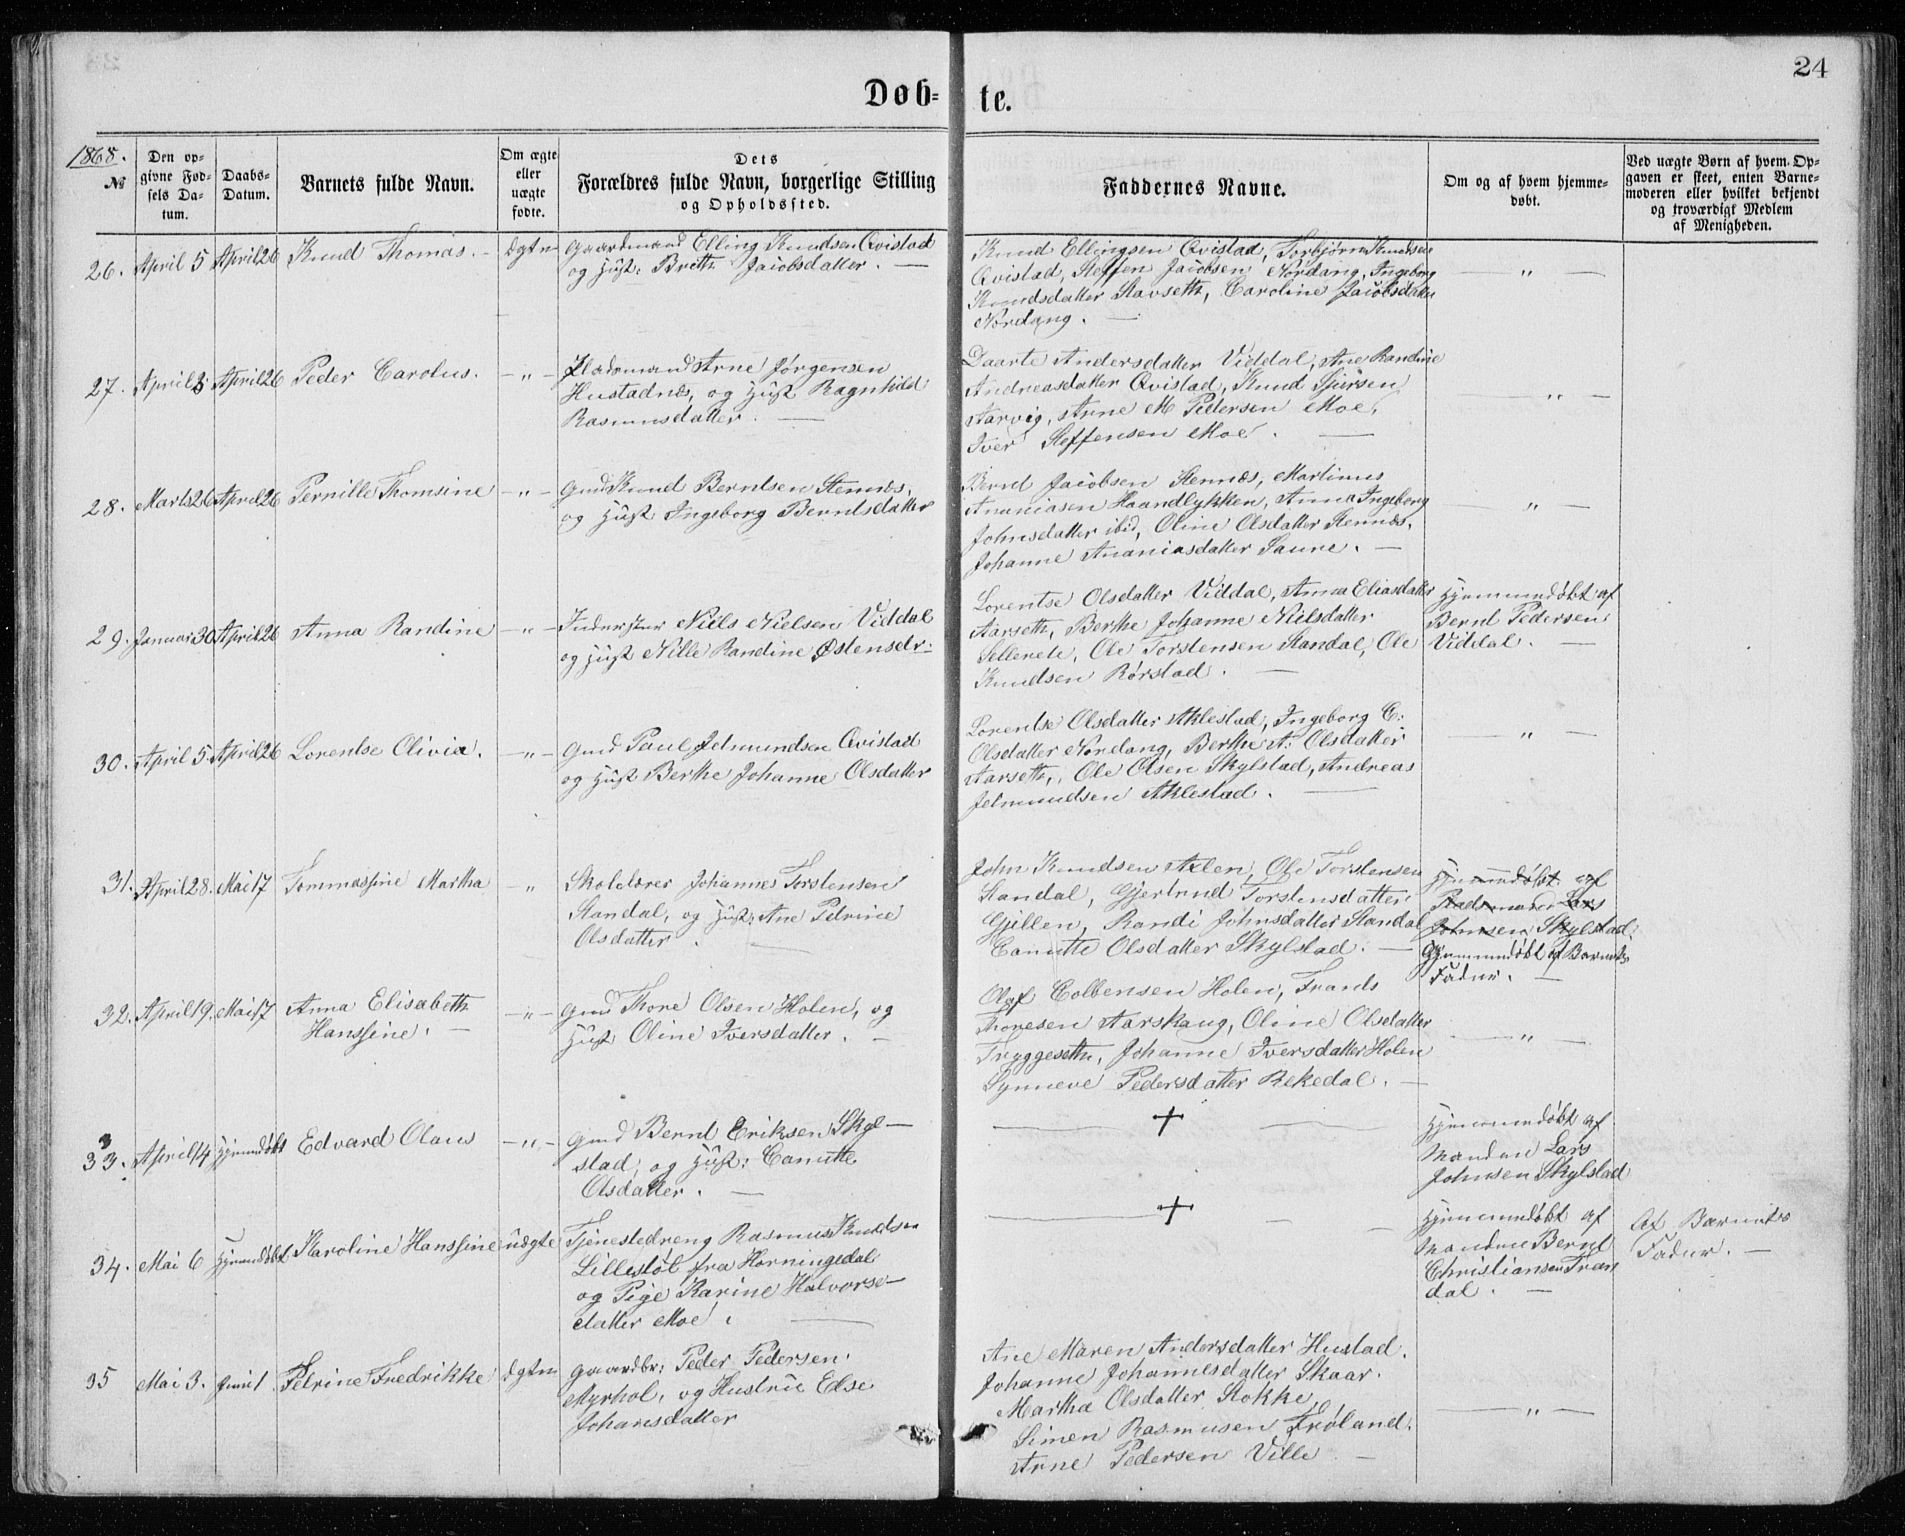 24
Døb- te.
1868.
№
Den opgivne Fødsels Datum.
Daabs-Datum.
Barnets fulde Navn.
Om ægte eller uægte fødte.
Dets Forældres fulde Navn, borgerlige Stilling og Opholdssted.
Faddernes Navne.
Om og af hvem hjemmedøbt.
Ved uægte Børn af hvem Opgaven er skeet, enten Barnemoderen eller hvilket bekjendt og troværdigt Medlem af Menigheden.
26. April 5 April 26 Knud Thomas. - ægten
Gaardmand Elling Knudsen Qvistad
og Hust: Brethe Jacobsdatter. —
Knud Ellingsen Qvistad, Torbjørn Knudsen
Qvistad, Steffen Jacobsen Nordang, Ingeborg
Knudsdatter Stavseth, Caroline Jacobsdatter
Nordang. —
— " —
27. April 8 April 26 Peder Carolus. — " —
Arne Jørgensen
Hustadnes, og Hust Ragnhild
Rasmusdatter. —
Daarte Andersdatter Viddal, Ane Randine
Andreasdatter Qvistad, Knud Sjursen
Aarvig, Arne M Pedersen Moe,
Iver Steffensen Moe. —
— " —
28. Marts 26 April 26 Pernille Thomsine — " —
Gmd Knud Berntsen Stennes,
og Hust Ingeborg Berntsdatter
Bernt Jacobsen Stennes, Martinus
Ananiasen Haandlykken, Anna Ingeborg
Johnsdatter ibid, Oline Olsdatter Stennes,
Johanne Ananiasdatter Saure. —
— " —
29. Januar 30 April 26 Anna Randine — " —
Inderster Niels Nielsen Viddal
og Hust Nille Randine Østensdr:
Lorentse Olsdatter Viddal, Anna Eliasdatter
Aarseth, Berthe Johanne Nielsdatter
Sellerete, Ole Torstensen Standal, Ole
Knudsen Rørstad. —
Hjemmedøbt af
Bernt Pedersen
Viddal. —
30. April 5 April 26 Lorentse Olivia. — " —
Gmd Paul Jetmundsen Qvistad
og Hust Berthe Johanne Olsdatter
Lorentse Olsdatter Aklestad, Ingeborg E:
Olsdatter Nordang, Berthe A: Olsdatter
Aarseth, Ole Olsen Skylstad, Andreas
Jetmundsen Aklestad. —
— " —
31. April 28. Mai 17 Tommassine Martha — "
Skolelærer Johannes Torstensen
Standal, og Hust: Ane Petrine
Olsdatter. —
John Knudsen Ole Torstensen
Standal, Gjertrud Torstensdatter
Gjillen, Randi Johnsdatter Standal
Canutte Olsdatter Skylstad. —
Hjemmedøbt af
Lars
Johnsen Skylstad.
Hjemmedøbt af Barnets
Fader. —
32. April 19. Mai 17 Anna Elisabeth
Hanssine. — — " —
Gmd Thore Olsen Holen, og
Hust Oline Iversdatter. —
Olaf Colbensen Holen, Frands
Thoresen Aarskaug, Oline Olsdatter
Tryggeseth, Johanne Iversdatter Holen
Synneve Pedersdatter Rekedal. —
— " —
33. April 14 Hjemmedøbt Edvard Olaus — " —
Gmd Bernt Eriksen Skyl-
stad, og Hust: Canutte
Olsdatter. —
— + —
Hjemmedøbt af
Manden Lars
Johnsen Skylstad
34. Mai 6 Hjemmedøbt Karoline Hanssine uægte
Tjenestedreng Rasmus Knudsen
Lillestøl fra Horningedal
og Pige Karine Halvors-
datter Moe. —
— + —
Hjemmedøbt af
Manden Bernt
Christiansen Tran
dal. —
Af Barnets
Fader. —
35 Mai 3. Juni 1 Petrine Fredrikke ægten
Gaardbr: Peder Pedersen
Myrhol, og Hustrue Else
Johansdatter
Ane Maren Andersdatter Hustad.
Johanne Johannesdatter Skaar.
Martha Olsdatter Stokke,
Simen Rasmusen Frøland.
Arne Pedersen Ville —
— " —